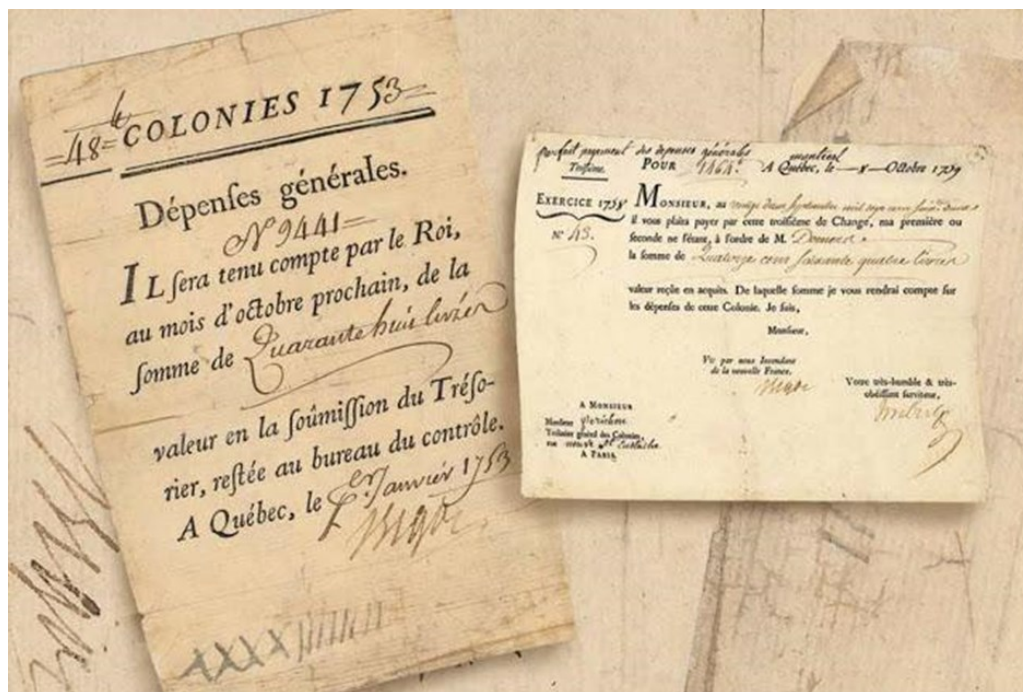 =48= ₶ COLONIES 1753=
Dépenſes générales.
N° 9441=
IL ſera tenu compte par le Roi,
au mois d'octobre prochain, de la
ſomme de Quarante huit livres
valeur en la ſoûmiſſion du Tréſo-
rier, reſtée au bureau du contrôle.
A Québec, le 1er Janvier 1753
Bigot
XXXXIIIIIIII
parfait payement des depenses générales
Troiſième. POUR 1464₶ A Québec, le montreal 8 Octobre 1759
EXERCICE 1758 MONSIEUR, au
N° 43. il vous plaira payer par cette troiſième de Change, ma première ou
ſeconde ne l'étant, à l'ordre de M.
la ſomme de Quatorze cent soixante quatre livres
valeur reçûe en acquits. De laquelle ſomme je vous rendrai compte ſur
les dépenſes de cette Colonie. Je ſuis,
Monſieur,
Vû par nous Intendant
de la nouvelle France.
Bigot
Votre très-humble & très-
obéiſſant ſerviteur,
Imbert
A MONSIEUR
Monſieur Perichon
Tréſorier général des Colonies,
rue neuve St Eustache
A PARIS.